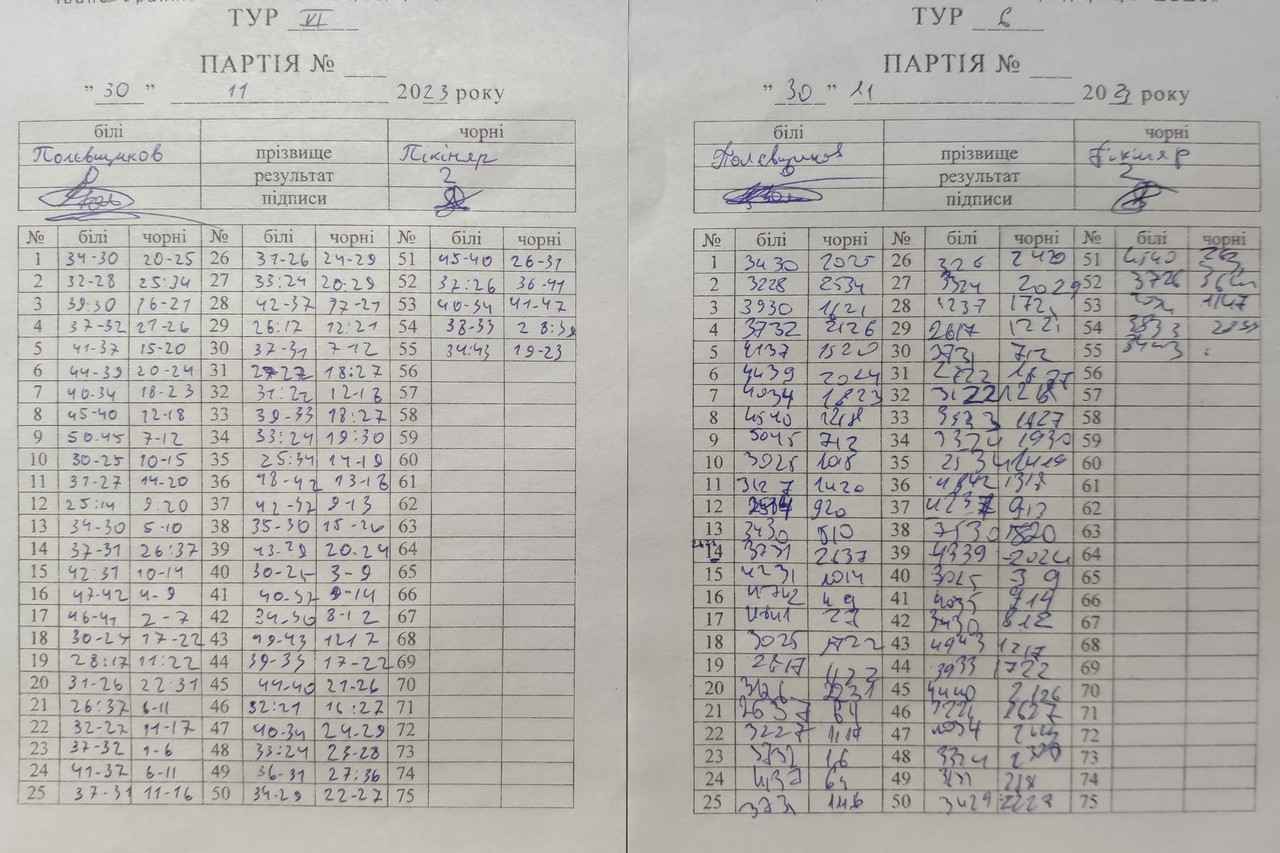 ТУР VI
ПАРТІЯ №
"30" 11 2023 року
білі чорні
Полєвщиков прізвище Пікінер
0 результат 2
підписи
№ білі чорні № білі чорні № білі чорні
1 34-30 20-25 26 31-26 24-29 51 45-40 26-31
2 32-28 25:34 27 33:24 20:29 52 37:26 36-41
3 39:30 16-21 28 42-37 17-21 53 40-34 41-47
4 37-32 21-26 29 26:17 12:21 54 38-33 28:39
5 41-37 15-20 30 37-31 7-12 55 34:43 19-23
6 44-39 20-24 31 27-22 18:27 56
7 40-34 18-23 32 31:22 12-18 57
8 45-40 12-18 33 39-33 18:27 58
9 50-45 7-12 34 33:24 19:30 59
10 30-25 10-15 35 25:34 14-19 60
11 31-27 14-20 36 48-42 13-18 61
12 25:14 9:20 37 42-37 9-13 62
13 34-30 5-10 38 35-30 15-20 63
14 37-31 26:37 39 43-39 20-24 64
15 42:31 10-14 40 30-25 3-9 65
16 47-42 4-9 41 9-14 66
17 46-41 2-7 42 34-30 8-12 67
18 30-25 17-22 43 49-43 12-17 68
19 28:17 11:22 44 39-33 17-22 69
20 31-26 22:31 45 44-40 21-26 70
21 26:37 6-11 46 32:21 16:27 71
22 32-27 11-17 47 40-34 24-29 72
23 37-32 1-6 48 33:24 23-28 73
24 41-37 6-11 49 36-31 27:36 74
25 37-31 11-16 50 34-29 22-27 75
ТУР 6
ПАРТІЯ №
"30" 11 2023 року
білі чорні
Полєвщиков прізвище Пікінер
0 результат 2
підписи
№ білі чорні № білі чорні № білі чорні
1 3430 2025 26 326 2420 51 4540
2 3228 2534 27 3324 2029 52 3726
3 3930 1621 28 4237 1721 53 1147
4 3732 2126 29 2617 1221 54 3833 2839
5 4137 1520 30 3731 712 55 3443
6 4439 2024 31 2722 1827 56
7 4034 1823 32 3122 1218 57
8 4540 1218 33 3933 1827 58
9 5045 712 34 3324 1930 59
10 3025 1015 35 2534 1419 60
11 3127 1420 36 4842 1318 61
12 2514 920 37 4237 913 62
13 3430 510 38 3530 1520 63
14 3731 2637 39 4339 2024 64
15 4231 1014 40 3025 39 65
16 4742 49 41 4035 914 66
17 4641 27 42 3430 812 67
18 3025 1722 43 4943 1217 68
19 2817 1122 44 3933 1722 69
20 3126 2231 45 4440 2126 70
21 2637 61 46 3221 1627 71
22 3227 1117 47 4034 72
23 3732 16 48 3324 73
24 4137 61 49 74
25 3731 1116 50 3429 2227 75